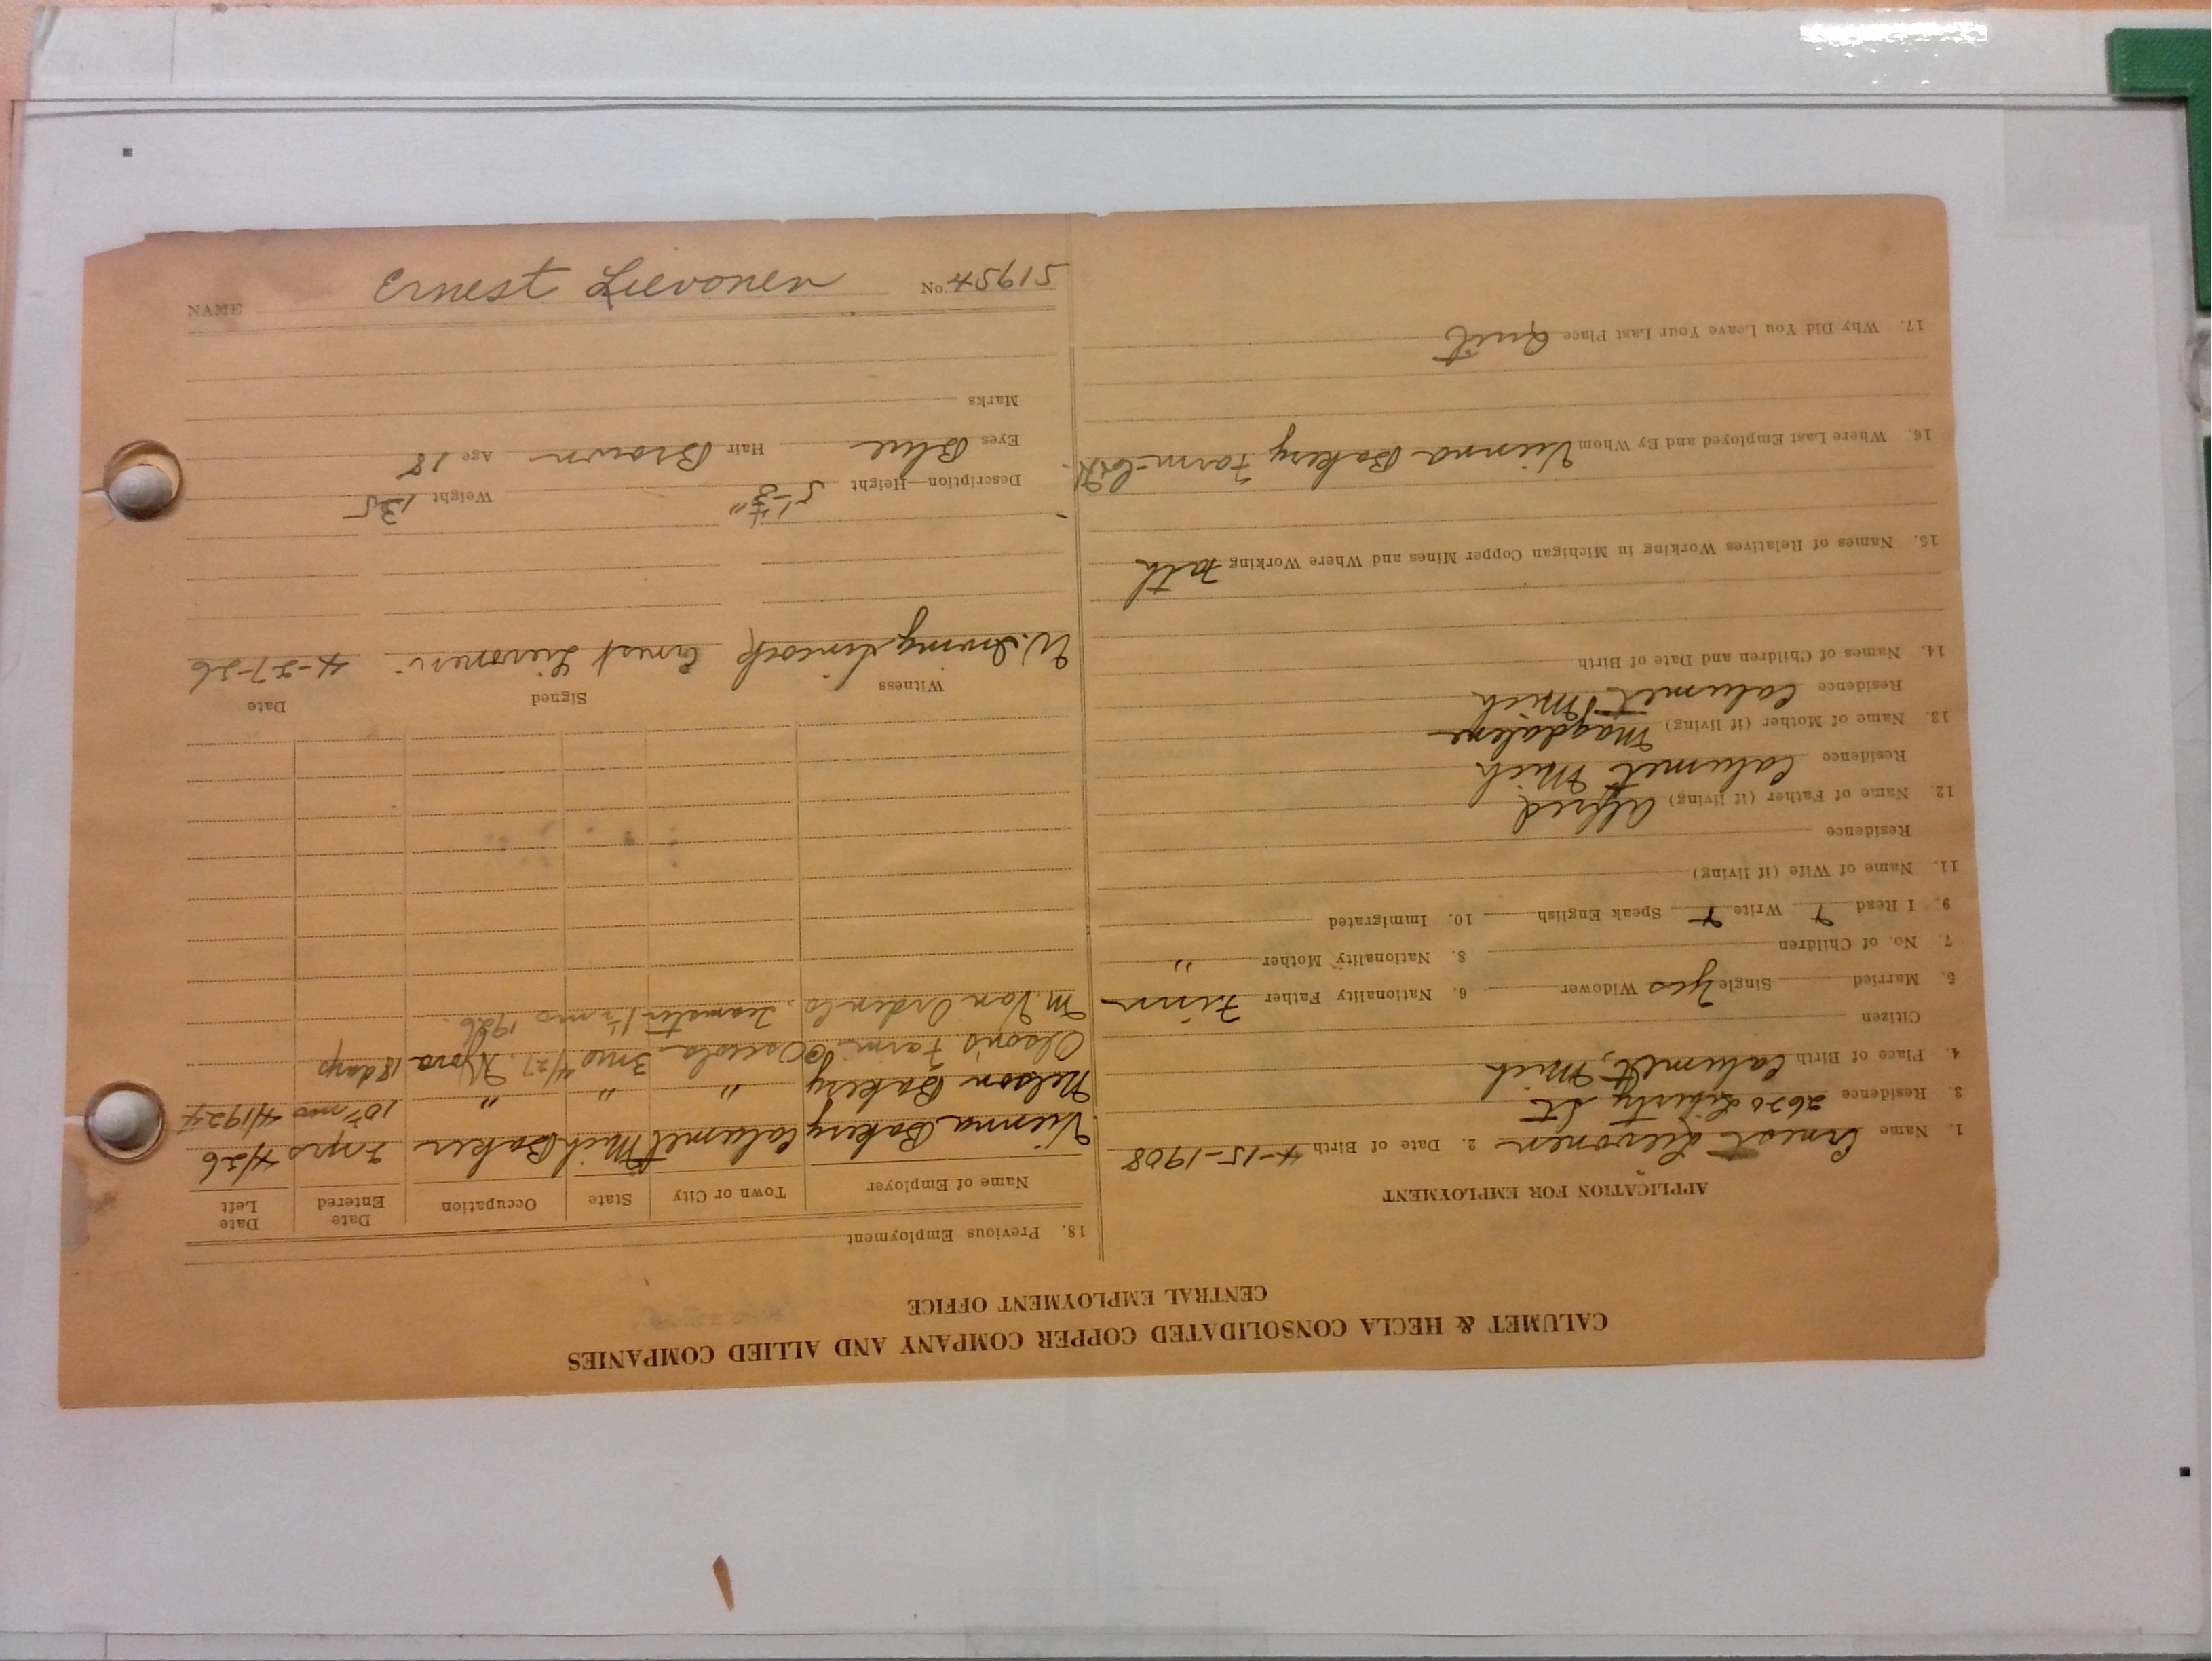 CALUMET & HECLA CONSOLIDATED COPPER COMPANY AND ALLIED COMPANIES
CENTRAL EMPLOYMENT OFFICE
APPLICATION FOR EMPLOYMENT
1. Name Ernest Lievonen 2. Date of Birth 4-15-1908
3. Residence 2620 Liberty St
4. Place of Birth Calumet, Mich
Citizen
5. Married Single Yes Widower 6. Nationality Father Finn
7. No. of Children 8. Nationality Mother "
9. I Read Write Speak English 10. Immigrated
11. Name of Wife (if living)
Residence
12. Name of Father (if living) Alfred
Residence Calumet Mich
13. Name of Mother (if living) Magdalene
Residence Calumet Mich
14. Names of Children and Date of Birth
15. Names of Relatives Working in Michigan Copper Mines and Where Working Fath
16. Where Last Employed and By Whom Vienna Bakery Farm
17. Why Did You Leave Your Last Place Quit
18. Previous Employment
Name of Employer Town or City State Occupation Date Entered Date Left
Vienna Bakery Calumet Mich Baker 2 yrs 4/26
Nelson Bakery " " " 10 mo 4/1924
Olson's Farm @ Osceola 3 mo 4/27. 18 days
M. Van Orden Co. Teamster 1½ mo 1926.
Witness Signed Date
W. Irving Ernest Lievonen 4-27-26
Description—Height Weight 135
Eyes Blue Hair Brown Age 18
Marks
NAME Ernest Lievonen No. 51954